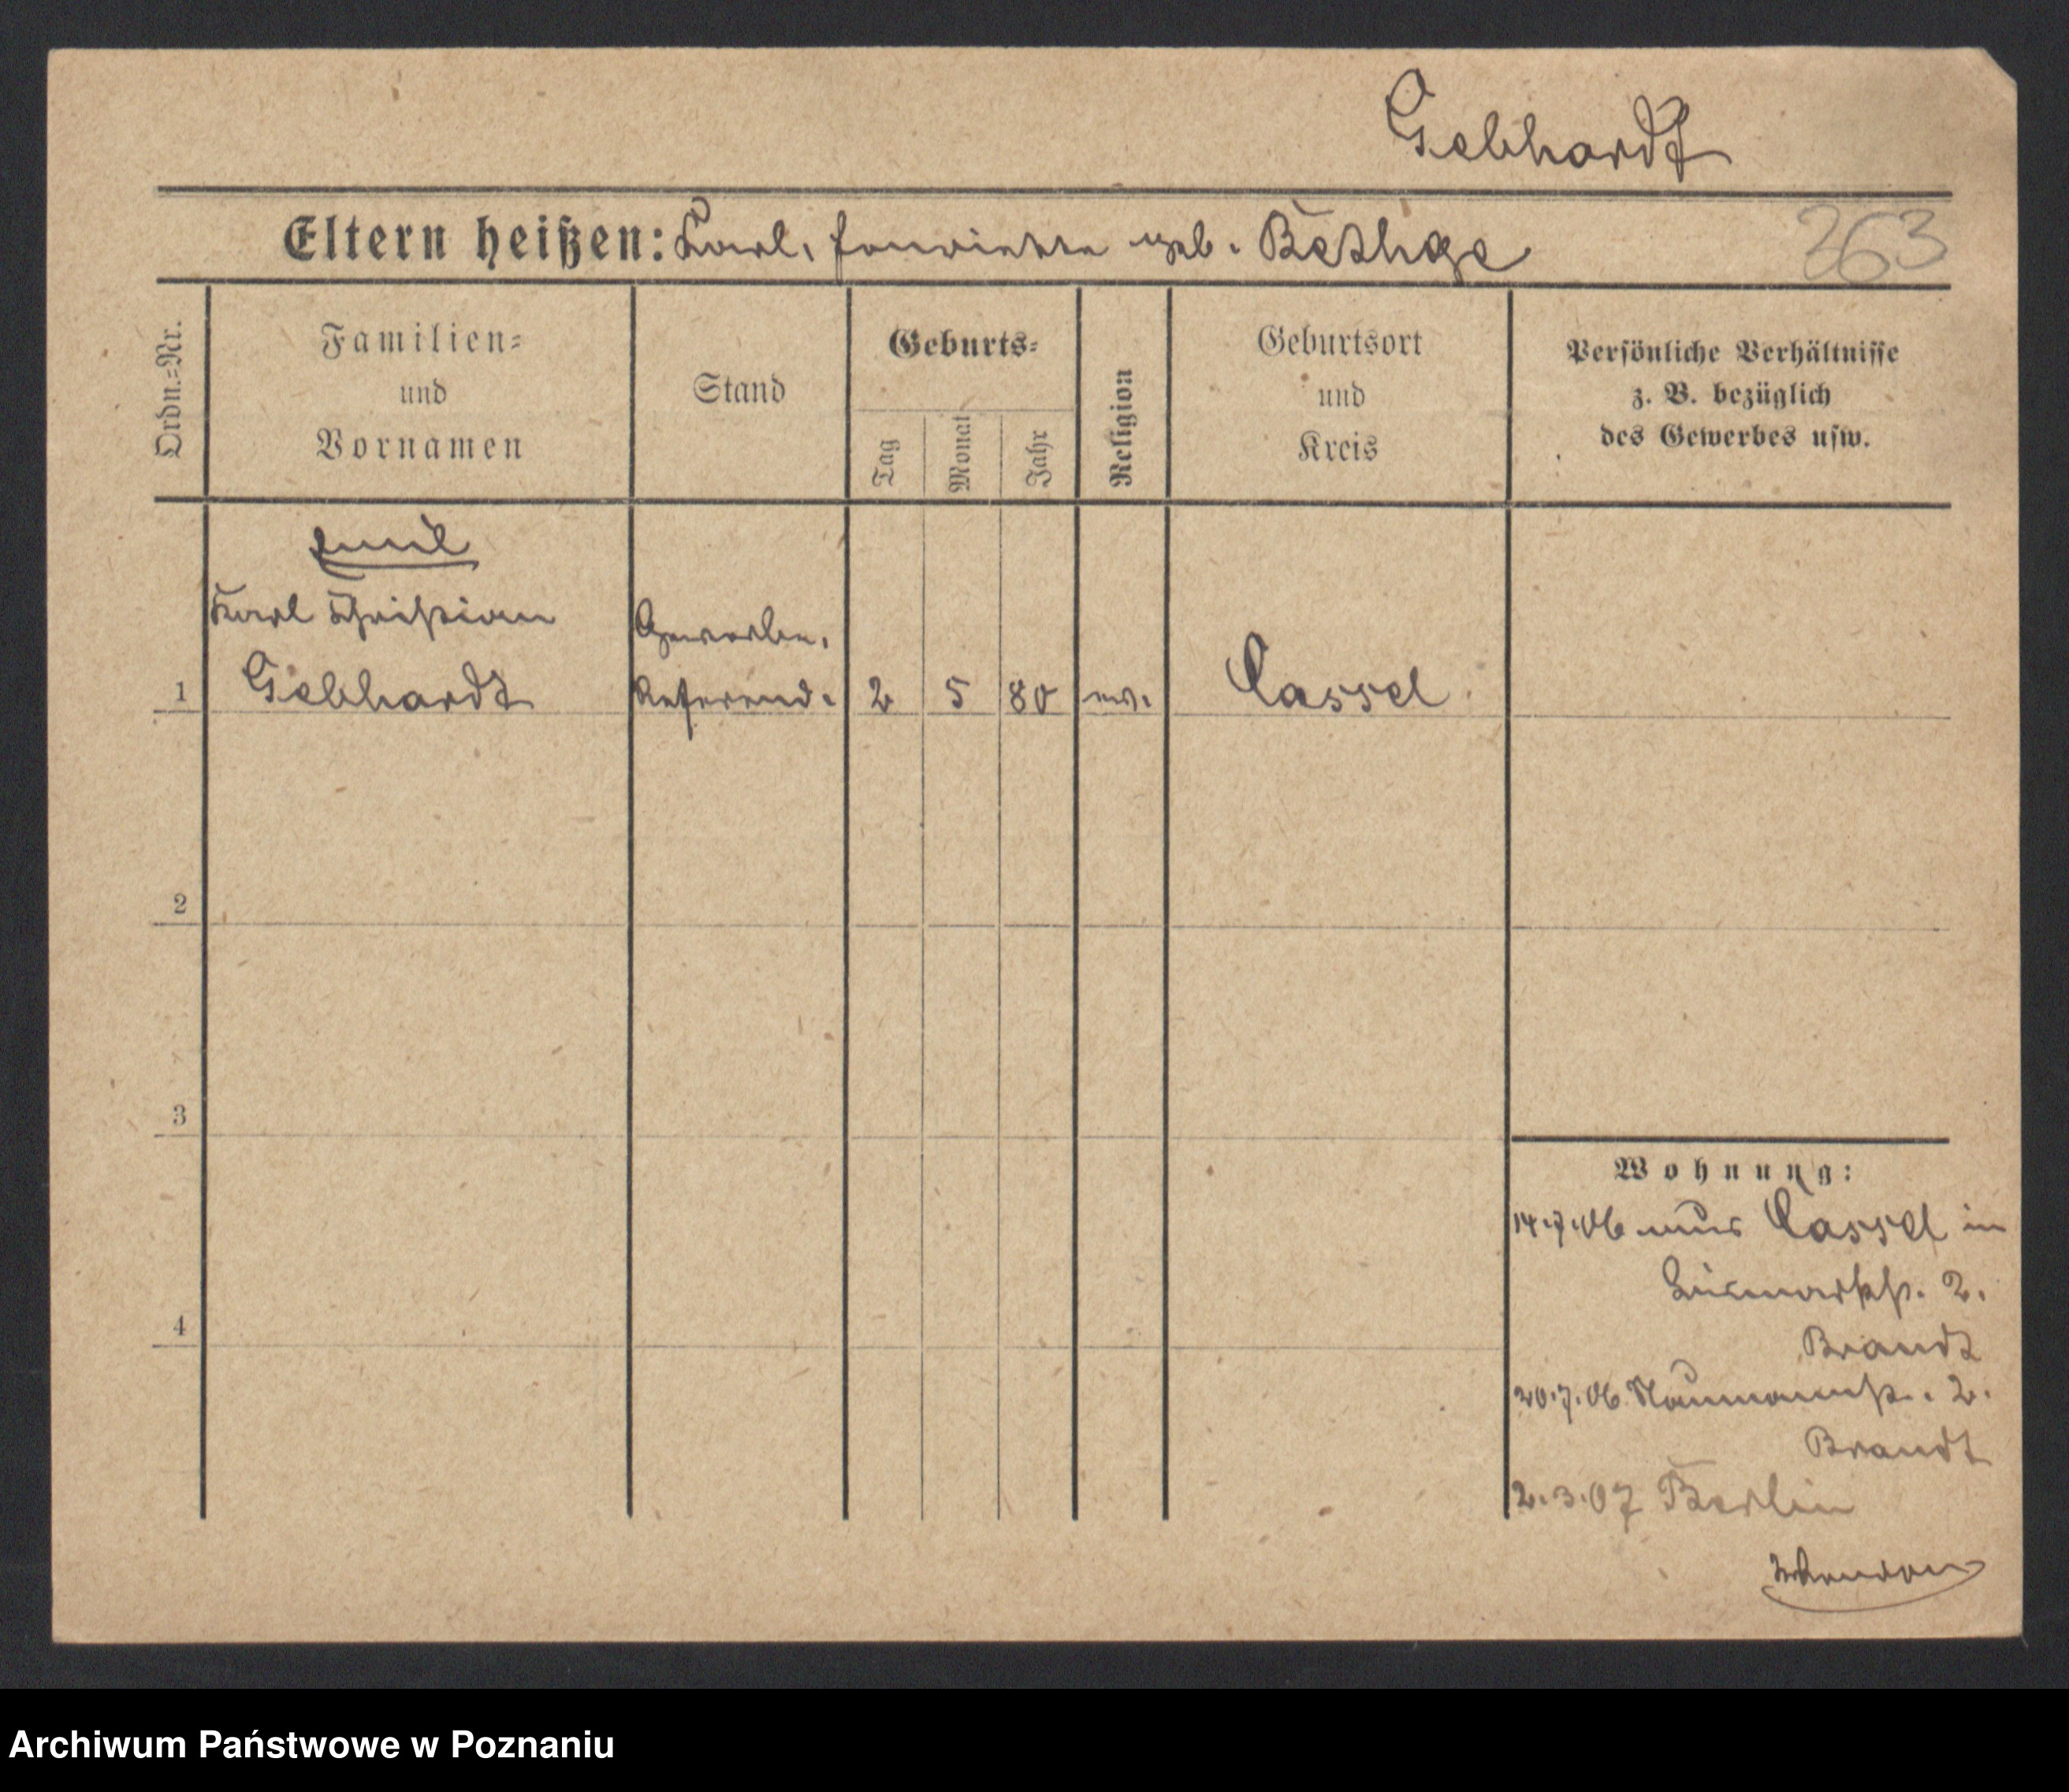 Gebhardt
Eltern heißen: Karl, Henriette geb. Bethge
263
Ordn.=Nr.
Familien=
und
Vornamen
Stand
Geburts=
Tag
Monat
Jahr
Religion
Geburtsort
und
Kreis
Persönliche Verhältnisse
z. B. bezüglich
des Gewerbes usw.
Emil
Karl Christian
Gebhardt
Gewerbe.
Referend.
1
2
5
80
ev.
Cassel
2
3
4
Wohnung:
14.7.06 aus Cassel in
Bismarkst. 2.
Brandt
20.7.06 Naumannst. 2.
Brandt
2.3.07 Berlin
Archiwum Państwowe w Poznaniu